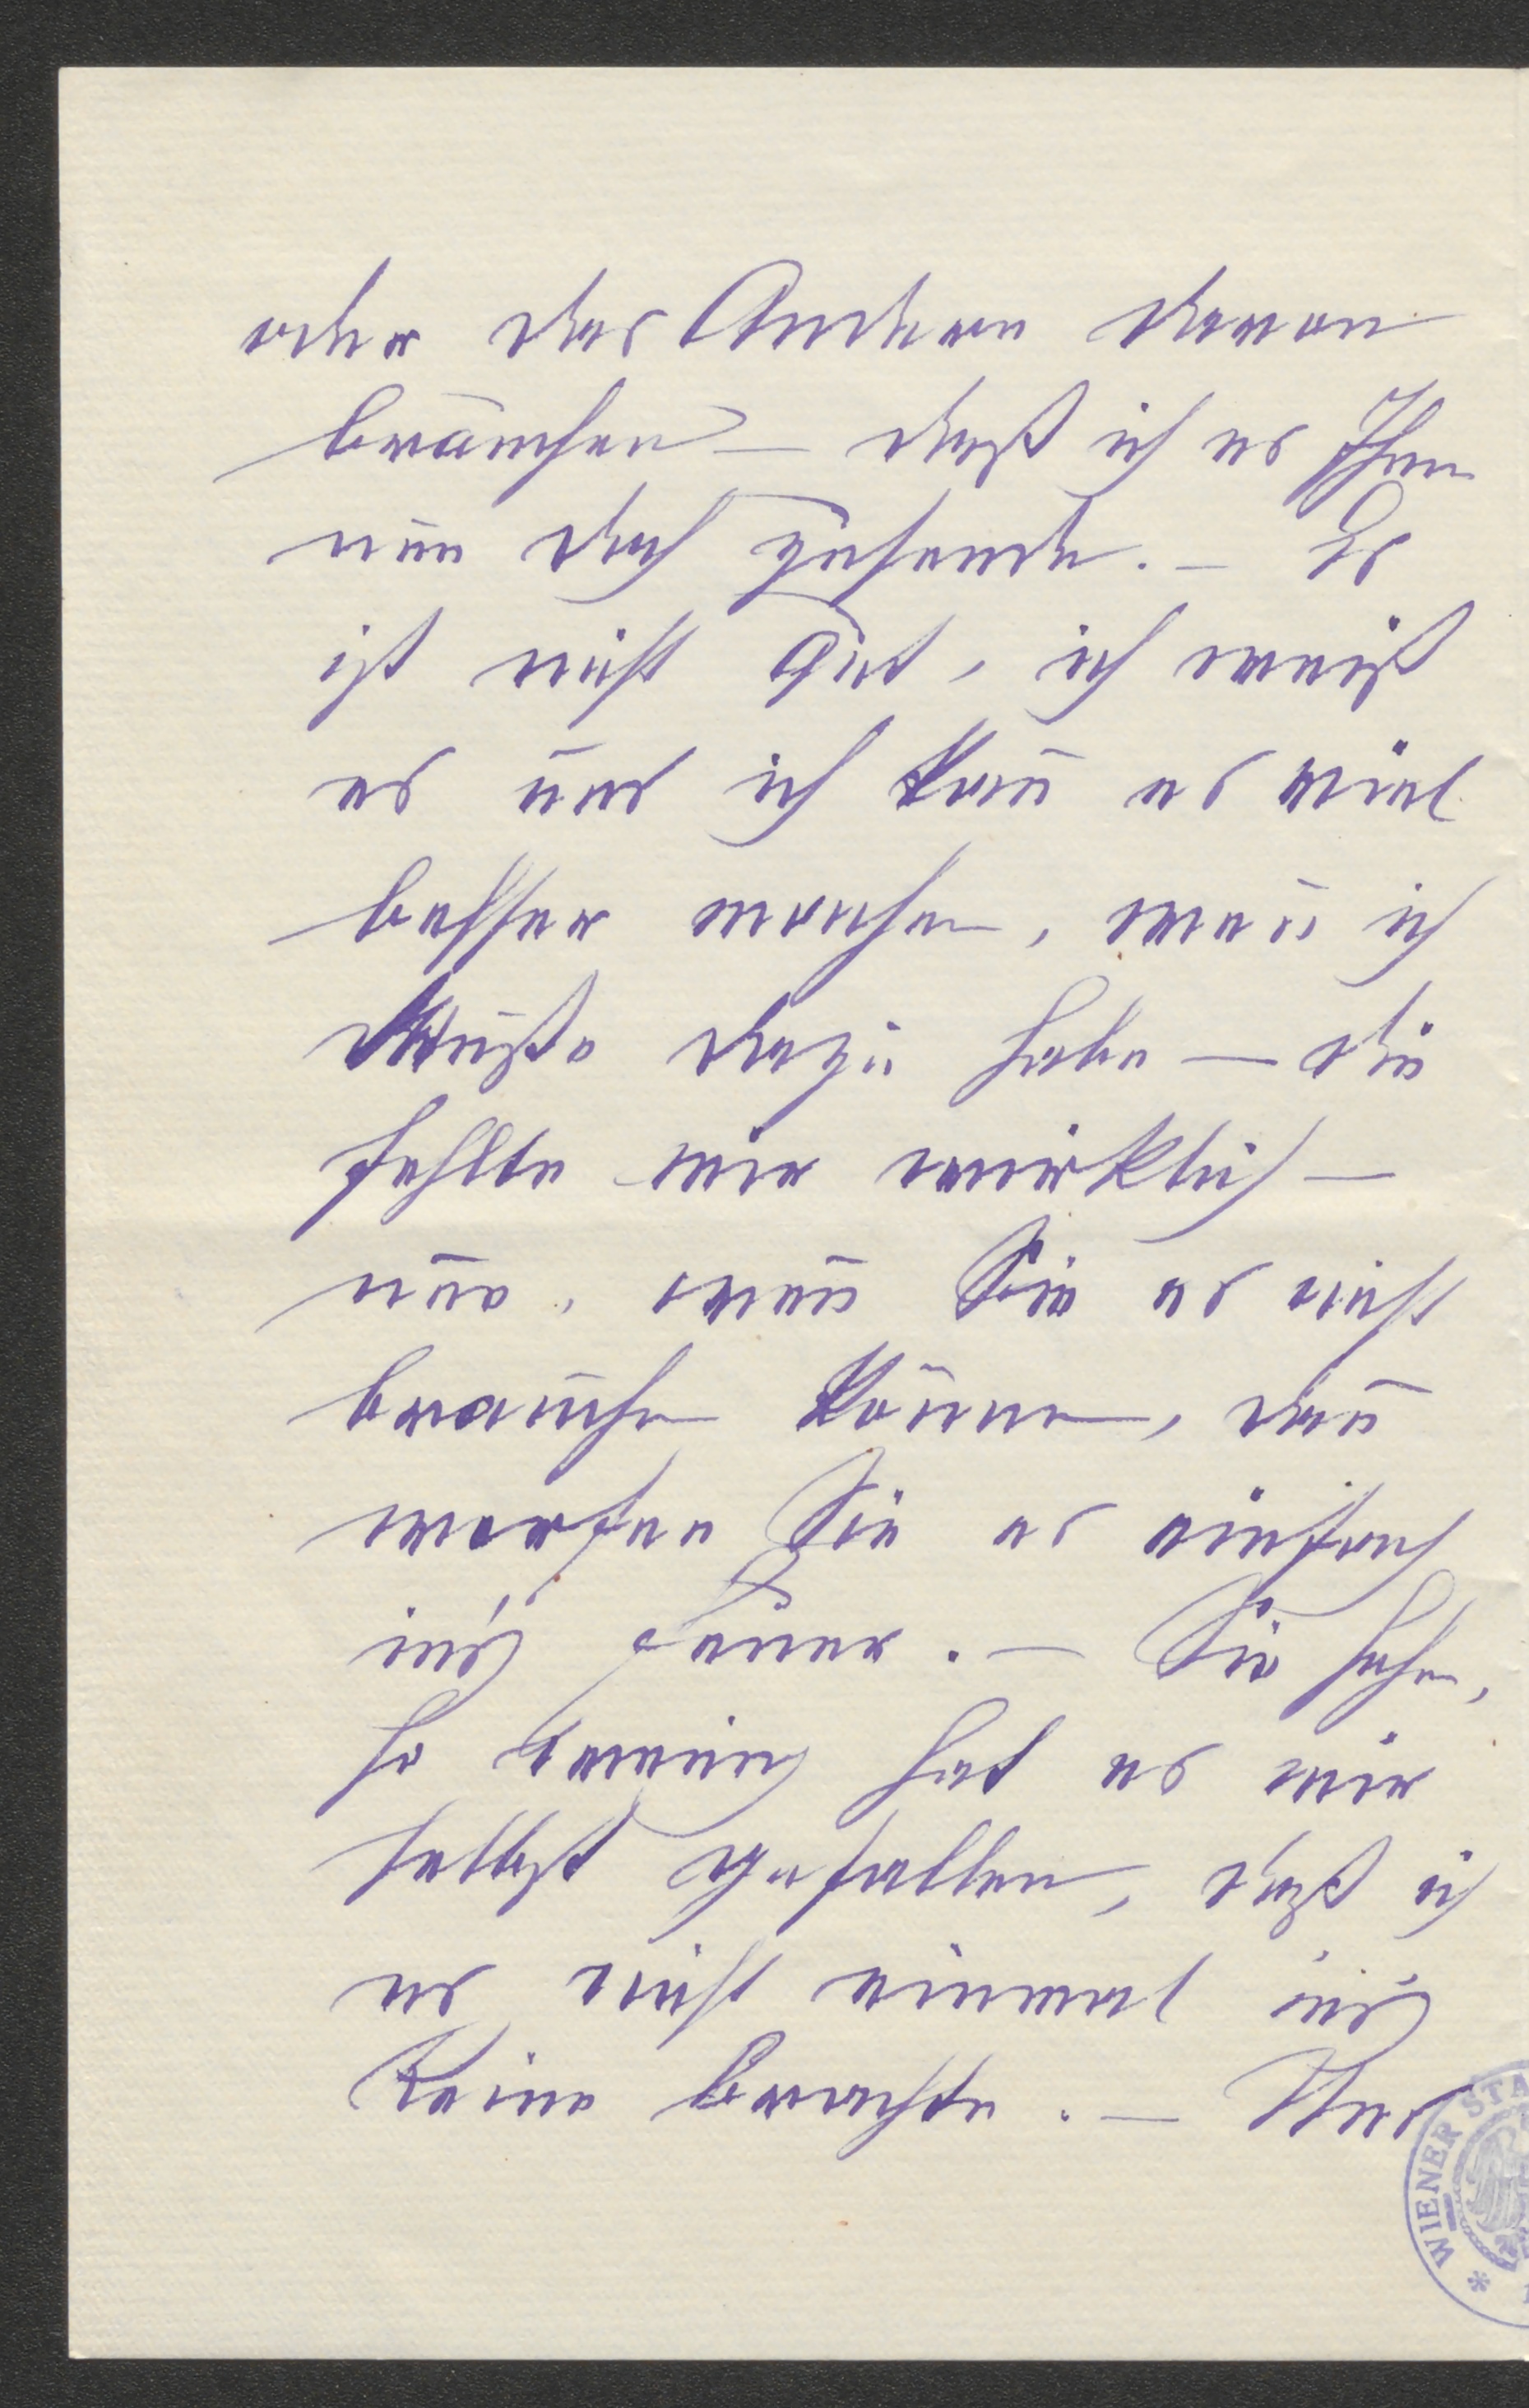 oder das Andere davon
brauchen – daß ich es Ihnen
nun doch zusende. – Es
ist nicht gut, ich weiß
es und ich kann̄ es viel
besser machen, wen̄ ich
Muße dazu habe – die
fehlte mir wirklich –
nur, wen̄ Sie es nicht
brauchen können, dan̄
werfen Sie es einfach
in's Feuer. – Sie sehen,
so wenig hat es mir
selbst gefallen, daß ich
es nicht einmal in's
Reine brachte. – Und
WIENER STA